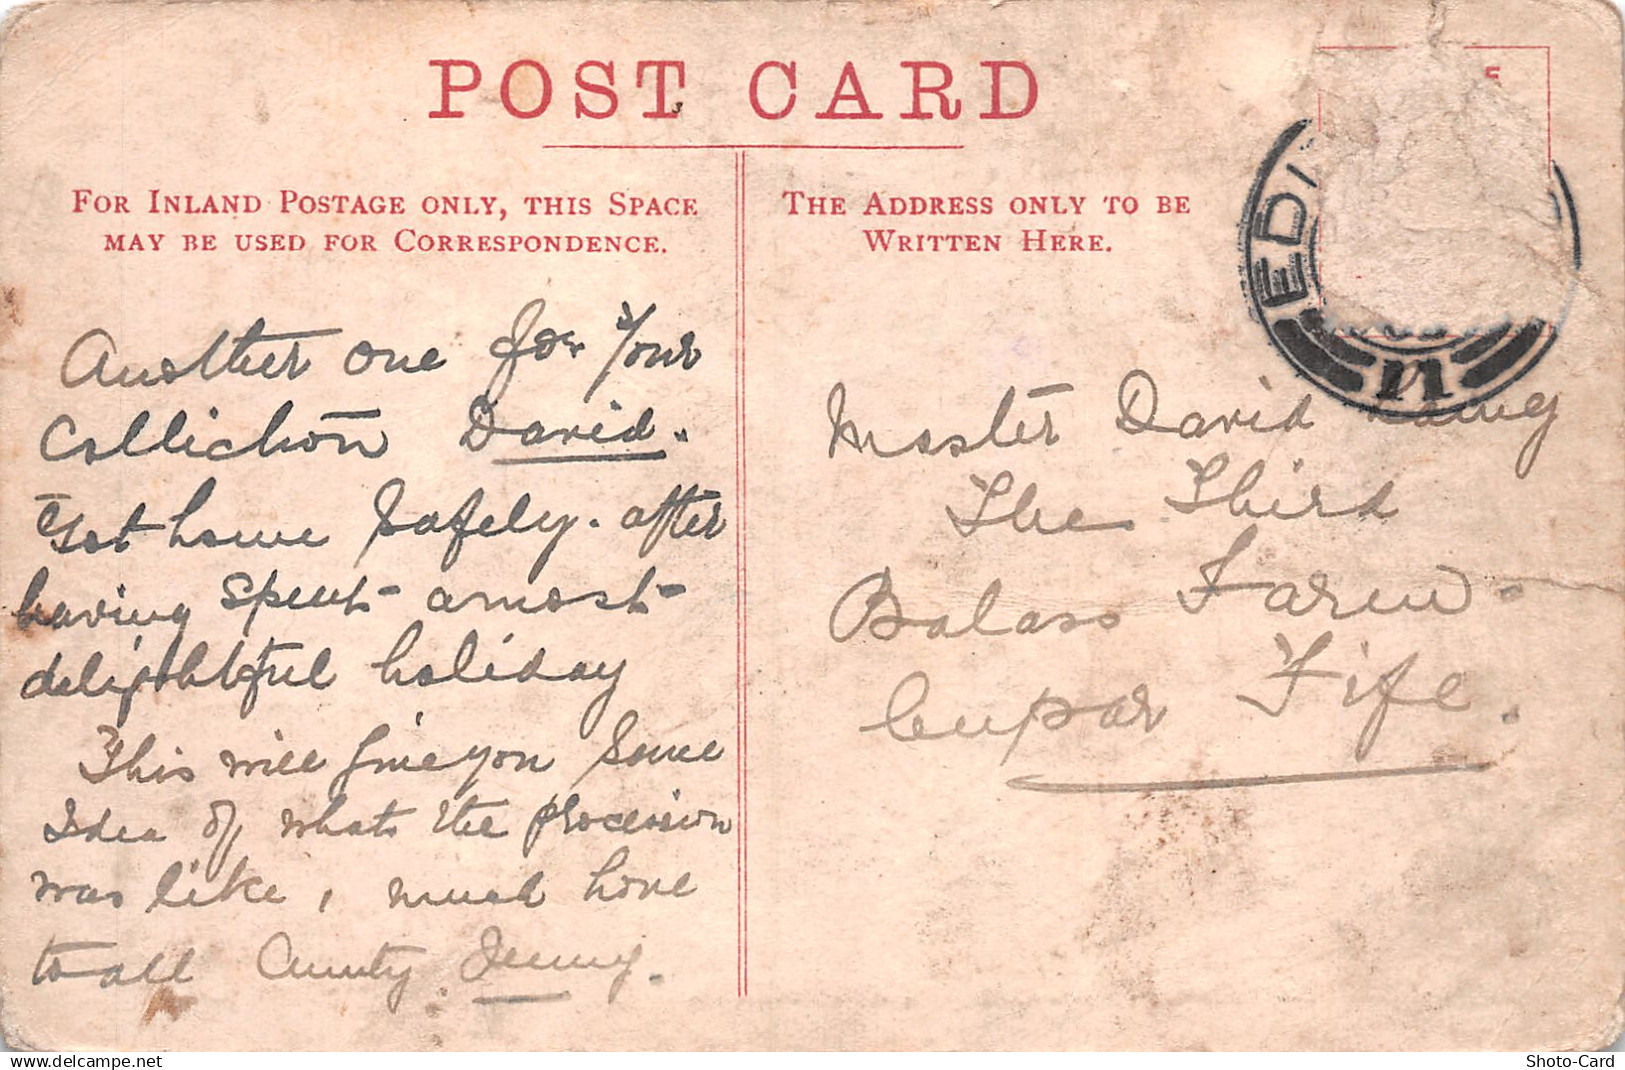 POST CARD
FOR INLAND POSTAGE ONLY, THIS SPACE
MAY BE USED FOR CORRESPONDENCE.
Another one for Your
Collichon David.
Got home Safely. after
having spent amost
delightful holiday
This will give you Some
Idea of whats the procession
was like, much love
to all Aunty Jenny.
THE ADDRESS ONLY TO BE
WRITTEN HERE.
EDI
11
Master David Laing
The Third
Balass Farm
Cupar Fife.
delcampe.net
Shoto-Card